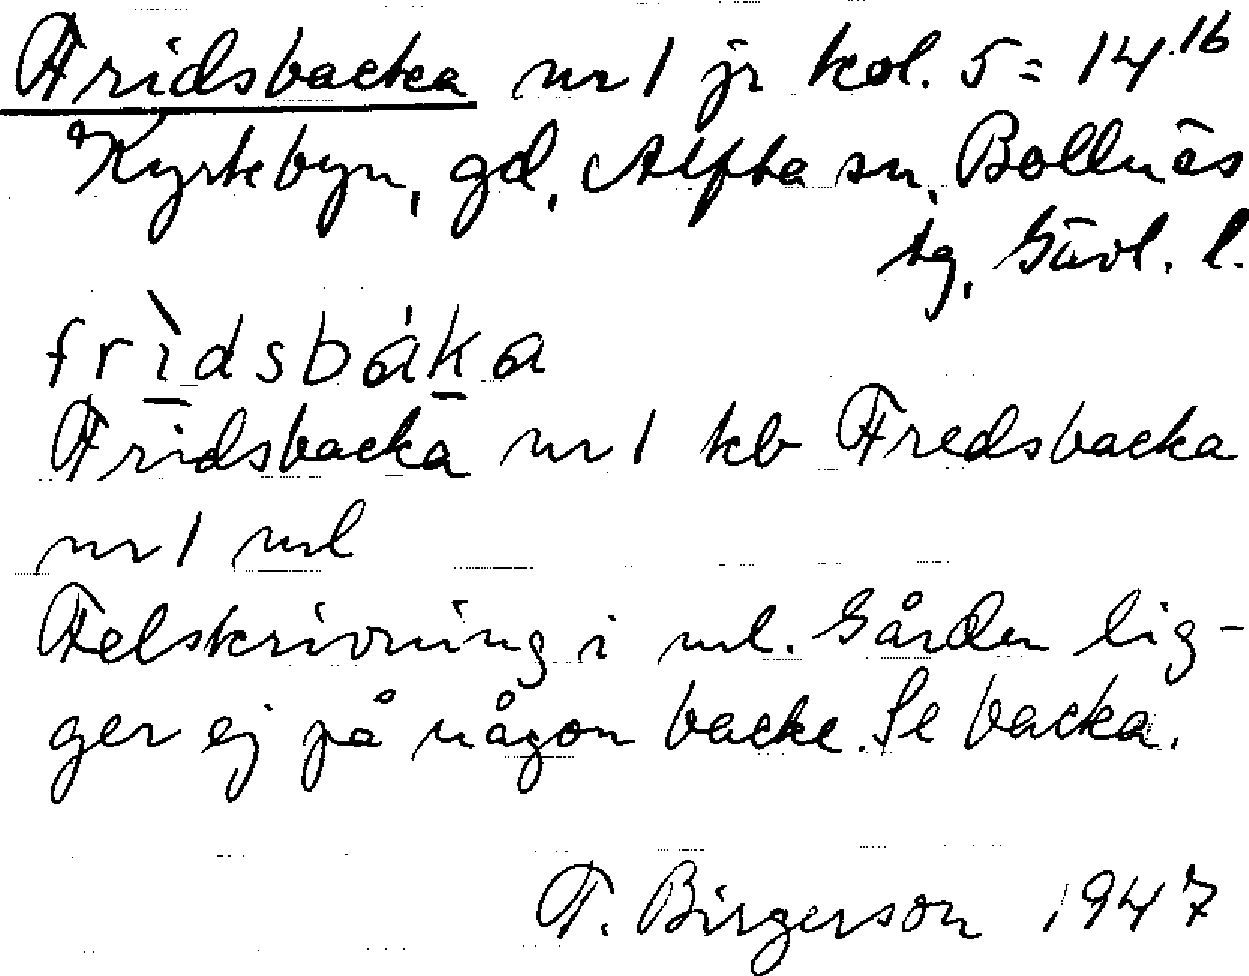 Fridsbacka nr 1 jr kol. 5 = 14.16
Kyrkbyn, gd, Alfta sn, Bollnäs
tg, Gävl. l.
frìdsbáka
Fridsbacka nr 1 kb Fredsbacka
nr 1 ml
Felskrivning i ml. Gården lig-
ger ej på någon backe. Se backa.
F. Birgerson 1947